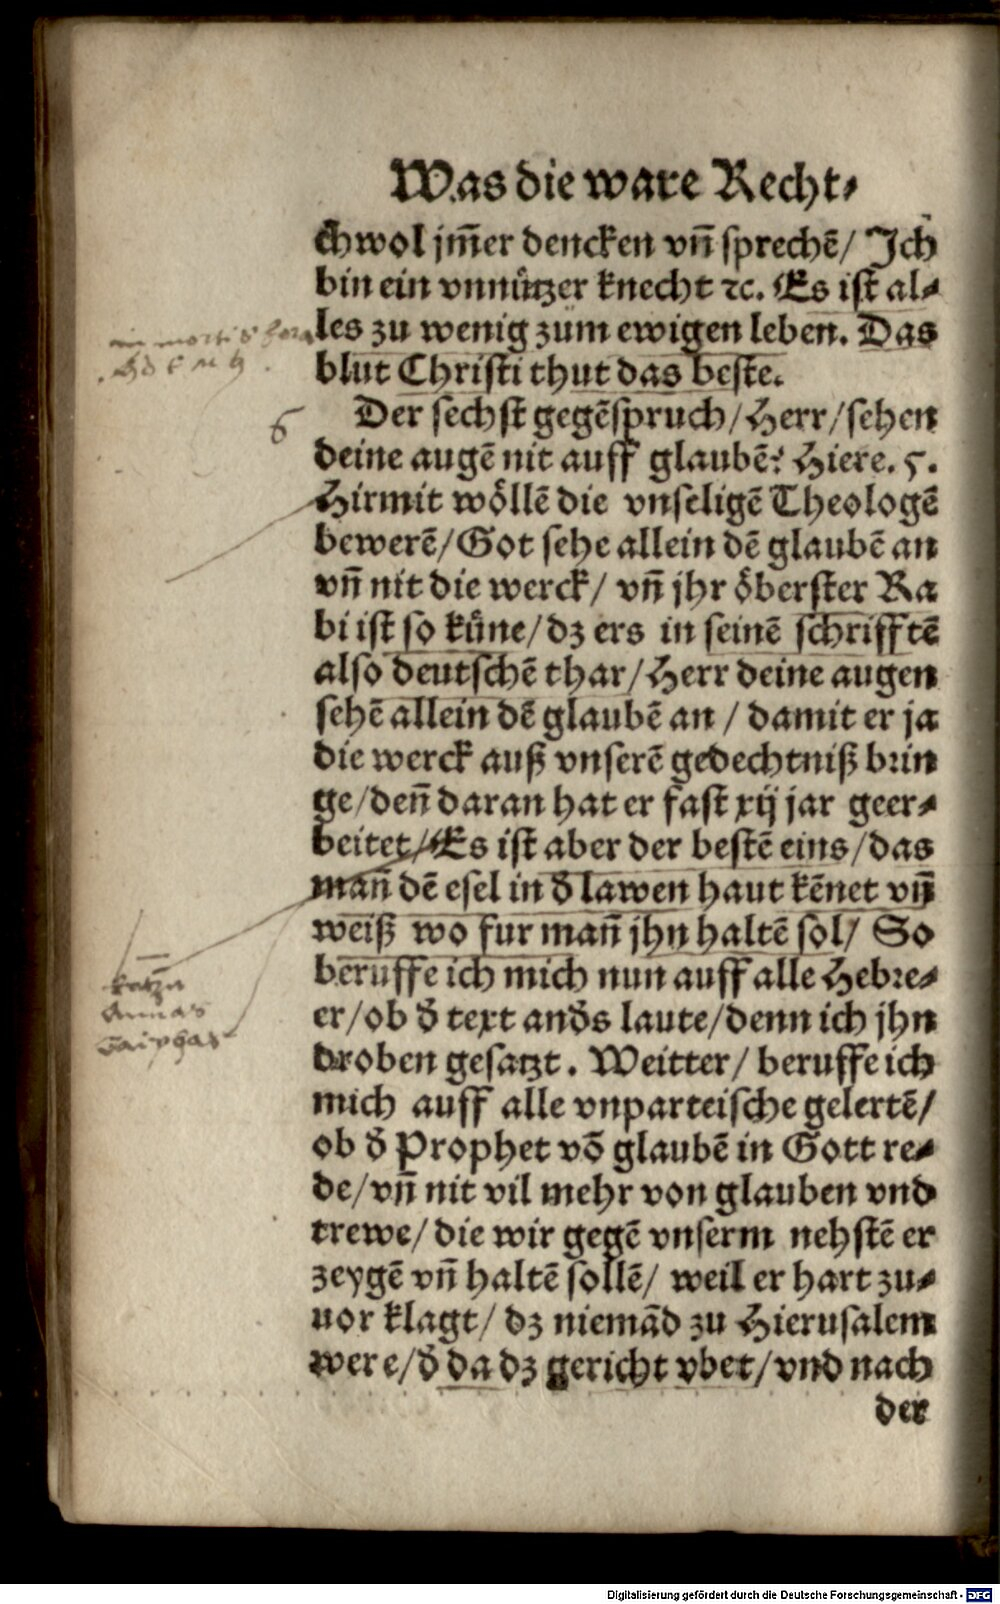 Was die ware Recht⸗
chwol jm̃er dencken vñ sprechē/ Ich
bin ein vnnützer knecht ꝛc. Es ist al⸗
les zu wenig zům ewigen leben. Das
blut Christi thut das beste.
6
Der sechst gegēspruch/Herr/sehen
deine augē nit auff glaubē? Hiere. 5.
Hirmit wöllē die vnseligē Theologē
bewerē/Got sehe allein dē glaubē an
vñ nit die werck/ vñ jhr öberster Ra
bi ist so küne/dz ers in seinē schrifftē
also deutschē thar/Herr deine augen
sehē allein dē glaubē an / damit er ja
die werck auß vnserē gedechtniß brin
ge/deñ daran hat er fast xij jar geer⸗
beitet/Es ist aber der bestē eins/das
mañ dē esel in d̕ lawen haut kēnet vñ
weiß wo fur mañ jhn haltē sol/ So
beruffe ich mich nun auff alle Hebre⸗
er/ob d̕ text and̕s laute/denn ich jhn
droben gesatzt. Weitter/ beruffe ich
mich auff alle vnparteische gelertē/
ob d̕ Prophet vō glaubē in Gott re⸗
de/vñ nit vil mehr von glauben vnd
trewe/die wir gegē vnserm nehstē er
zeygē vñ haltē sollē/ weil er hart zu⸗
uor klagt/ dz niemād zu Hierusalem
were/d̕ da dz gericht vbet/vnd nach
der
in mortis hora
Annas
Caiphas
Digitalisierung gefördert durch die Deutsche Forschungsgemeinschaft - DFG